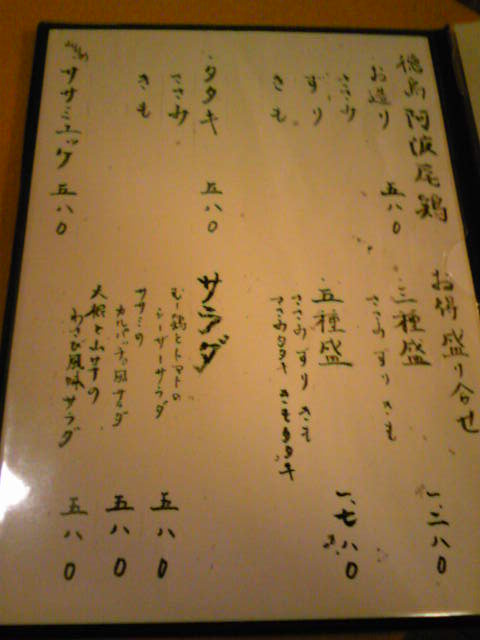 徳島阿波尾鶏
お造り 五八〇
ささみ
すり
きも
タタキ 五八〇
ささみ
きも
ササミユッケ 五八〇
お併盛り合せ
三種盛 一、二八〇
ささみ すり きも
五種盛 一、七八〇
ささみ すり きも
ささみタタキ きもタタキ
サラダ
むし鶏とトマトの
シーザーサラダ 五八〇
ササミの
カルパッチョ風サラダ 五八〇
大根と山芋の
わさび風味サラダ 五八〇